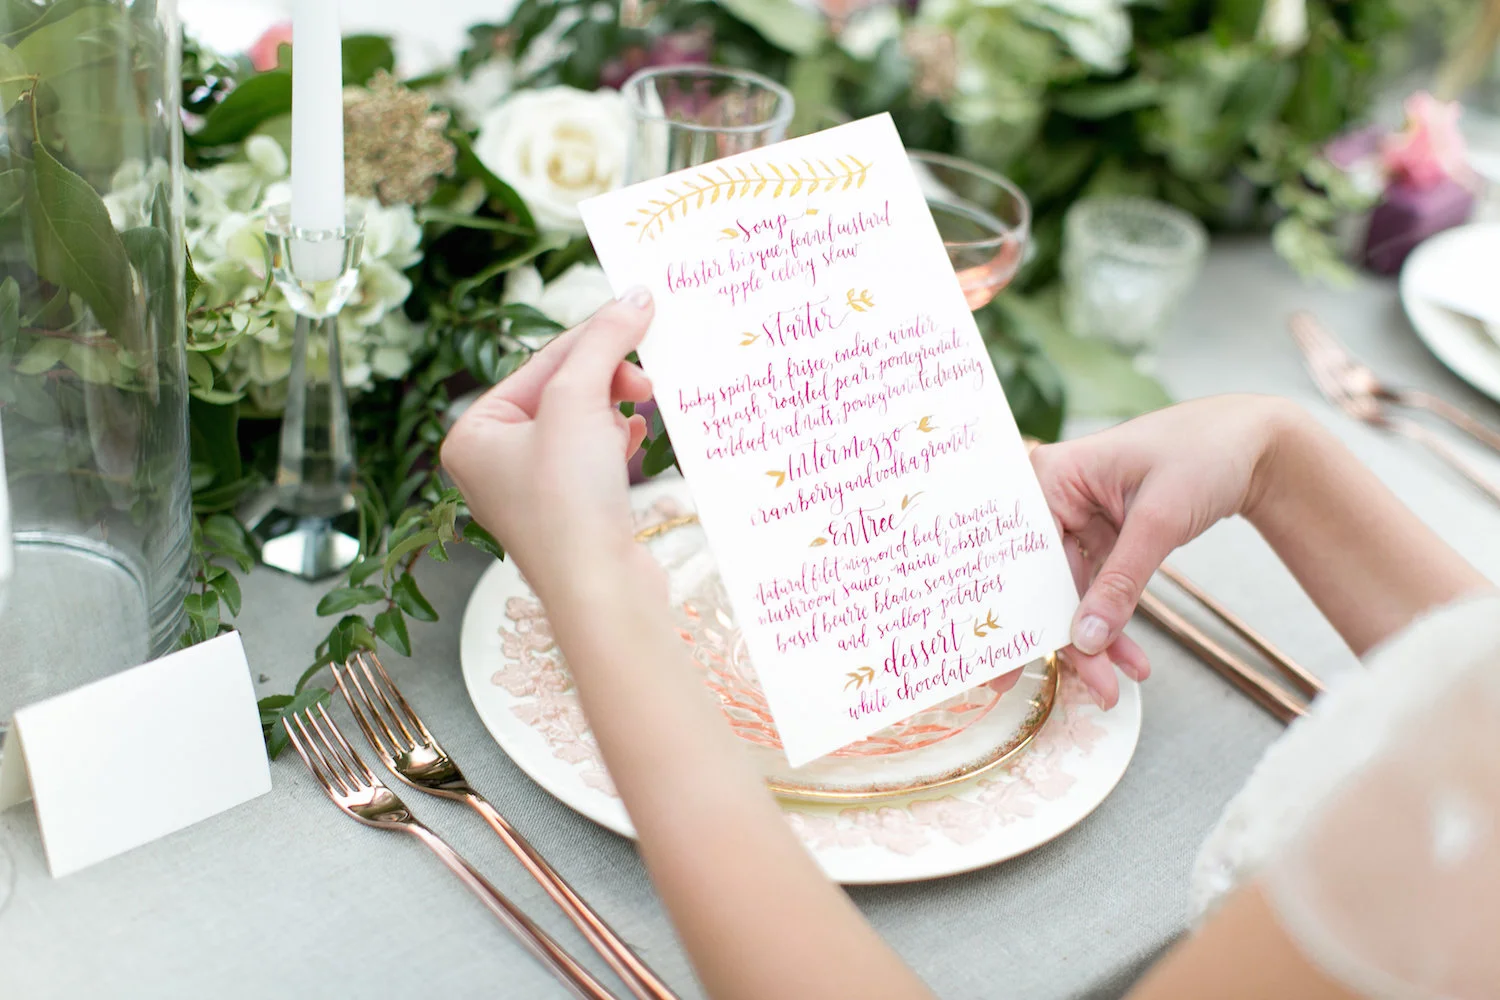 Soup
lobster bisque, fennel custard
apple celery slaw
Starter
baby spinach, frisee, endive, winter
squash, roasted pear, pomegranate,
candied walnuts, pomegranate dressing
Intermezzo
cranberry and vodka granite
Entree
natural filet mignon of beef, cremini
mushroom sauce, maine lobster tail,
basil beurre blanc, seasonal vegetables,
and scallop potatoes
dessert
white chocolate mousse